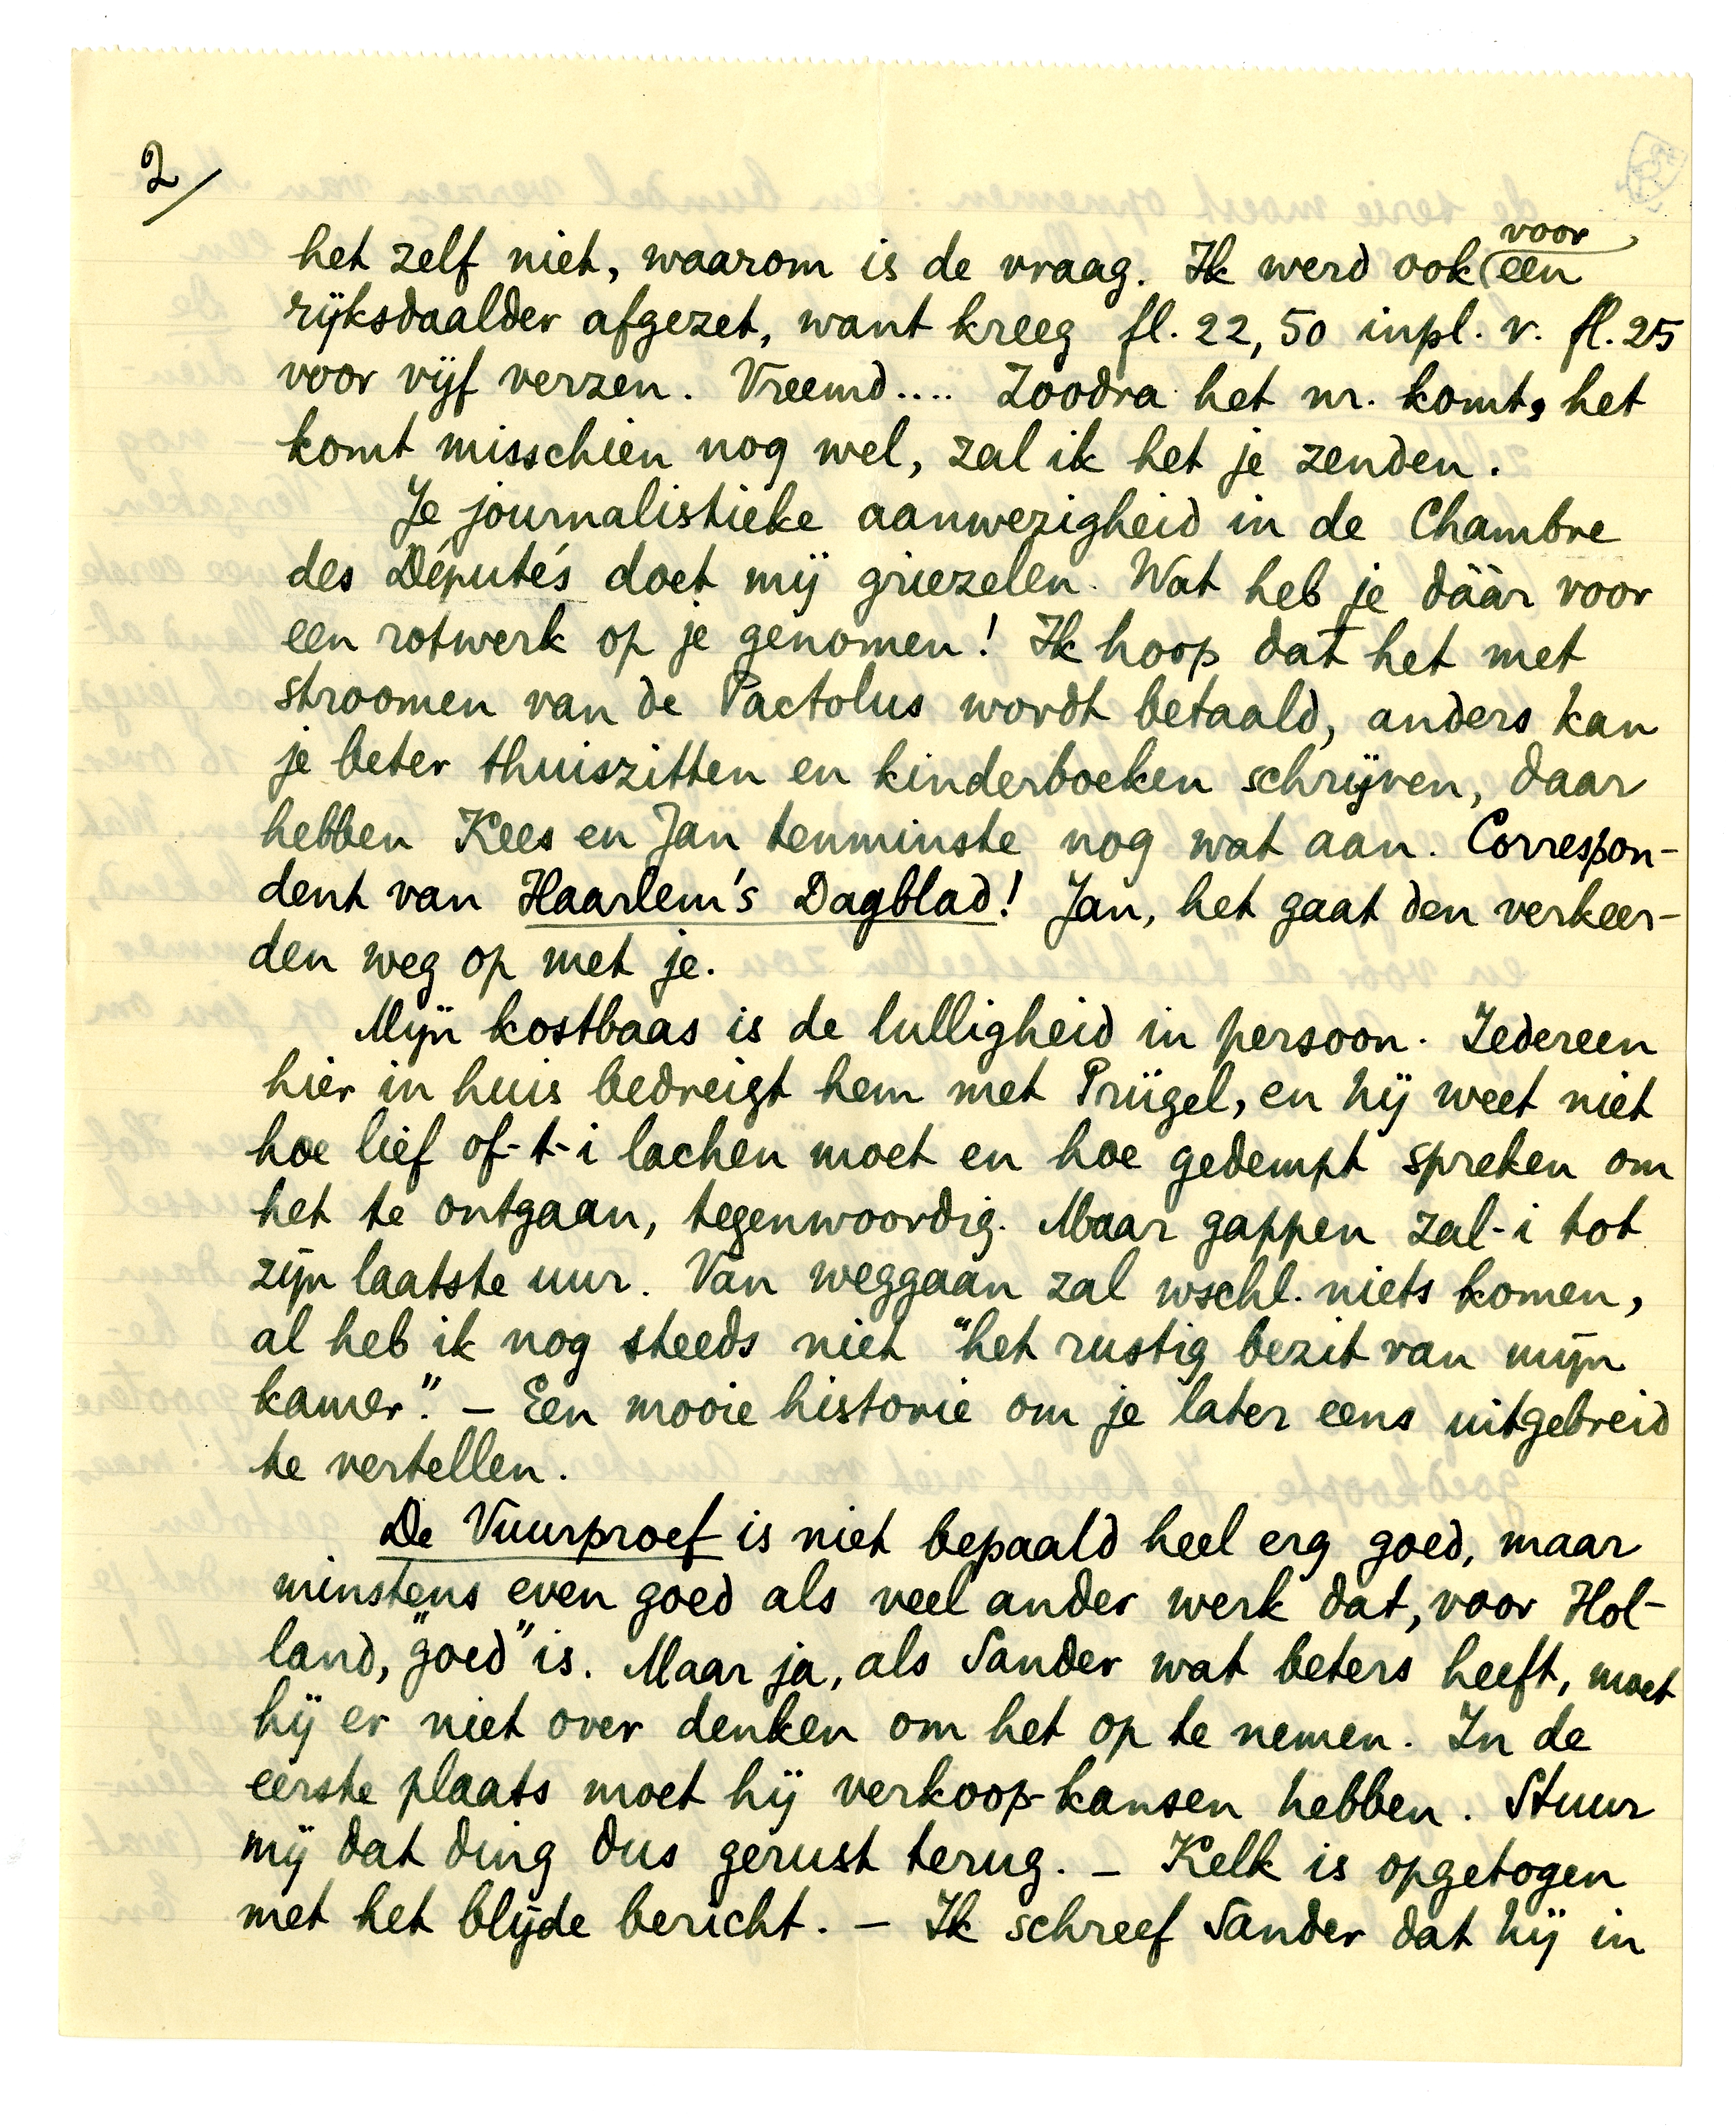 2/
het zelf niet, waarom is de vraag. Ik werd ook voor een
rijksdaalder afgezet, want kreeg fl. 22,50 inpl. v. fl. 25
voor vijf verzen. Vreemd.... Zoodra het nr. komt, het
komt misschien nog wel, zal ik het je zenden.
Je journalistieke aanwezigheid in de Chambre
des Députés doet mij griezelen. Wat heb je dáàr voor
een rotwerk op je genomen! Ik hoop dat het met
stroomen van de Pactolus wordt betaald, anders kan
je beter thuiszitten en kinderboeken schrijven, daar
hebben Kees en Jan tenminste nog wat aan. Correspon-
dent van Haarlem's Dagblad! Jan, het gaat den verkeer-
den weg op met je.
Mijn kostbaas is de lulligheid in persoon. Iedereen
hier in huis bedreigt hem met Prügel, en hij weet niet
hoe lief of-t-i lachen moet en hoe gedempt spreken om
het te ontgaan, tegenwoordig. Maar gappen zal-i tot
zijn laatste uur. Van weggaan zal wschl. niets komen,
al heb ik nog steeds niet "het rustig bezit van mijn
kamer". – Een mooie historie om je later eens uitgebreid
te vertellen.
De Vuurproef is niet bepaald heel erg goed, maar
minstens even goed als veel ander werk dat, voor Hol-
land, "goed" is. Maar ja, als Sander wat beters heeft, moet
hij er niet over denken om het op te nemen. In de
eerste plaats moet hij verkoop-kansen hebben. Stuur
mij dat ding dus gerust terug. – Kelk is opgetogen
met het blijde bericht. – Ik schreef Sander dat hij in